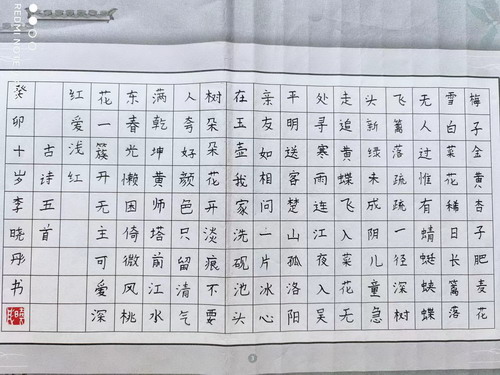 梅子金黄杏子肥麦花
雪白菜花稀日长篱落
无人过惟有蜻蜓蛱蝶
飞篱落疏疏一径深树
头新绿未成阴儿童急
走追黄蝶飞入菜花无
处寻寒雨连江夜入吴
平明送客楚山孤洛阳
亲友如相问一片冰心
在玉壶我家洗砚池头
树朵朵花开淡痕不要
人夸好颜色只留清气
满乾坤黄师塔前江水
东春光懒困倚微风桃
花一簇开无主可爱深
红爱浅红
古诗五首
癸卯十岁李晓彤书
REDMI NOTE
3